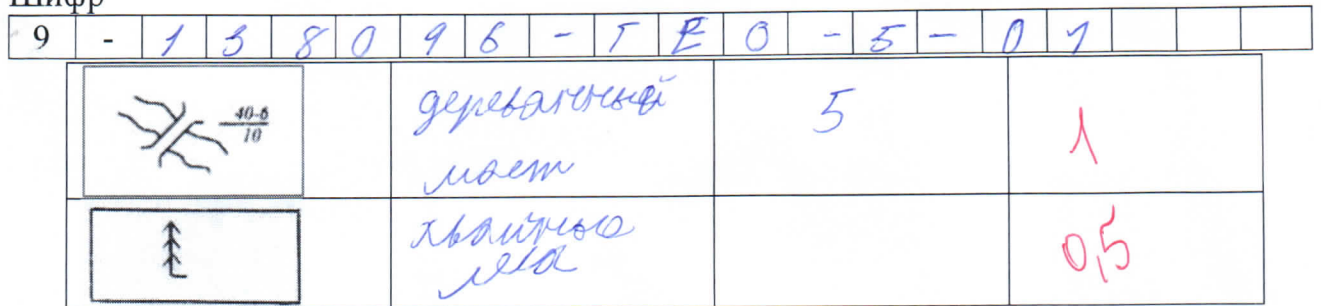 Шифр
9 - 138096 - ГЕО - 5 - 01
40-6
10
деревянный 5 1
мост
хвойные 0,5
леса